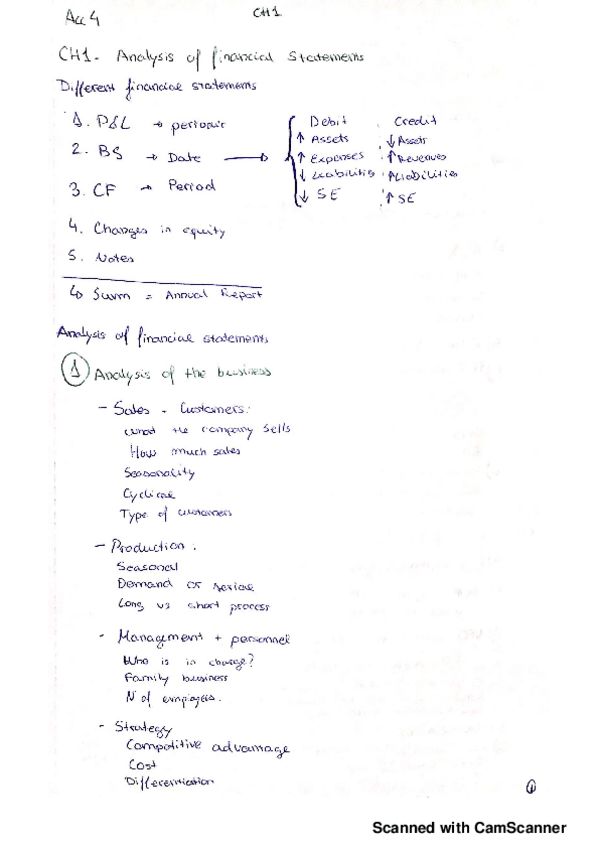 Acc 4
CH1
CH1. Analysis of financial Statements
Different financial statements
1. P&L → periodic
2. BS → Date →
3. CF → Period
Debit Credit
↑ Assets ↓ Assets
↑ Expenses ↑ Revenues
↓ Liabilities ↑ Liabilities
↓ SE ↑ SE
4. Changes in equity
5. Notes
↳ Sum = Annual Report
Analysis of financial statements
1 Analysis of the business
- Sales + Customers:
What the company sells
How much sales
Seasonality
Cyclical
Type of customers
- Production:
Seasonal
Demand or serial
Long vs short process
- Management + personnel
Who is in charge?
Family business
N of employees.
- Strategy
Competitive advantage
Cost
Differentiation
1
Scanned with CamScanner